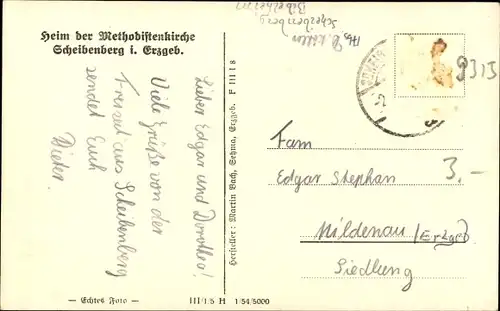 Heim der Methodistenkirche
Scheibenberg i. Erzgeb.
Lieber Edgar und Dorothea!
Viele Grüße von der
Freizeit aus Scheibenberg
sendet Euch
Dieter.
Hersteller: Martin Bach, Sehma, Erzgeb. F III 18
Fam
Edgar Stephan
Mildenau (Erzgeb
Siedlung
9313
3.-
— Echtes Foto —
III/1/5 H 1/54/5000